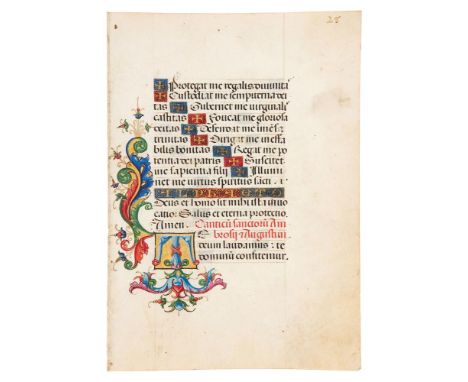 25
Protegat me regalis diuinita
Custodiat me sempiterna dei
tas Gubernet me uirginalis
castitas Foueat me gloriosa
deitas Defendat me imēsa
trinitas Dirigat me ineffa
bilis bonitas Regat me po
tentia dei patris Suscitet
me sapientia filij Illumi
net me uirtus spiritus sāti. i
Deus et homo sit mihi ista inuo
catio: Salus et eterna protectio
Amen. Canticū sanctorū Am
brosij & Augustini
Te deum laudamus: te
dominū confitemur.